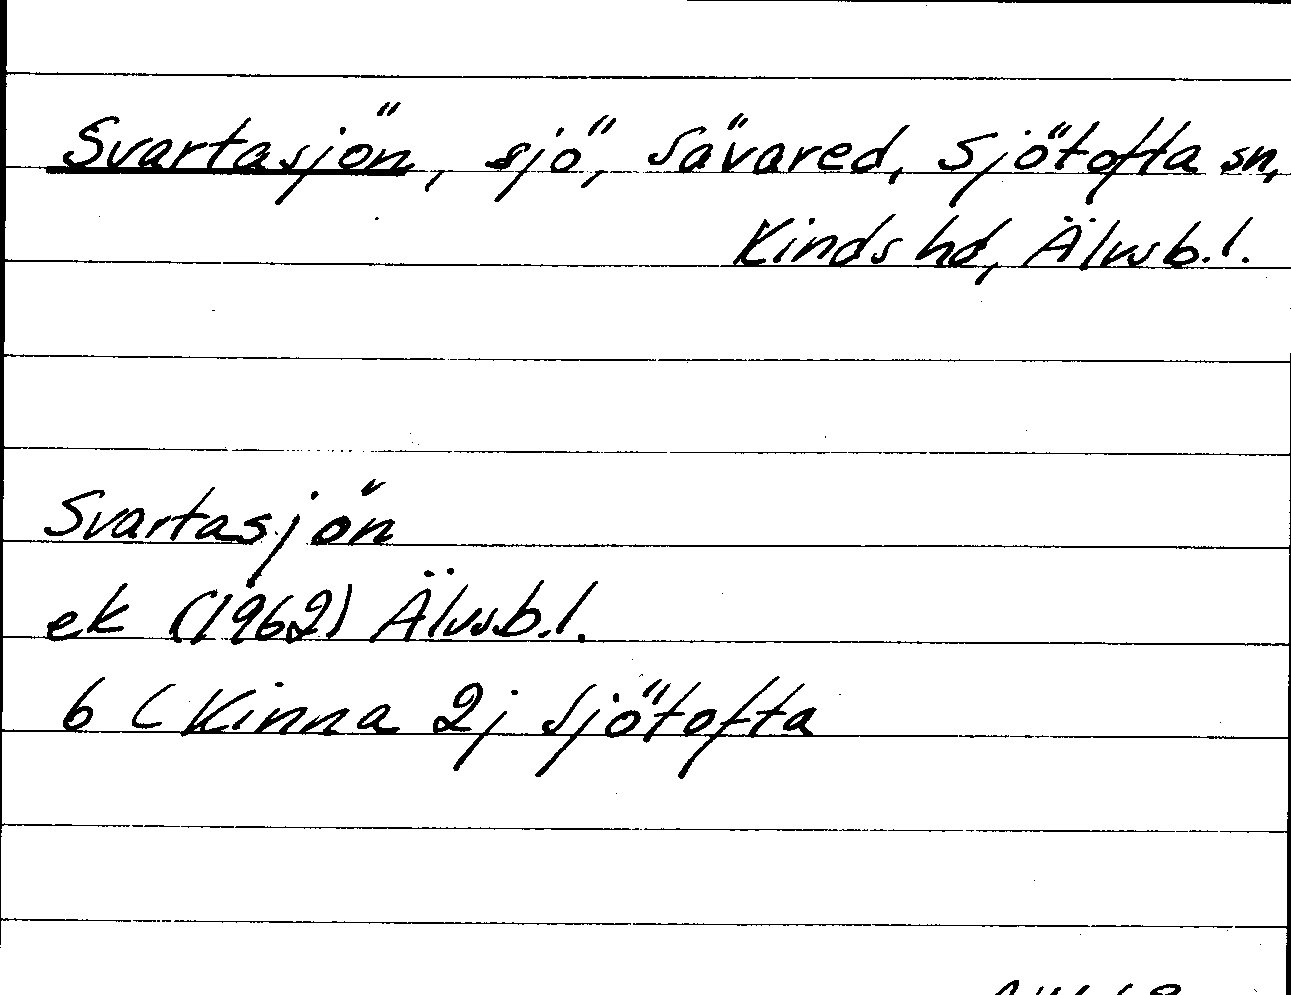 Svartasjön, sjö, Sävared, Sjötofta sn,
Kinds hd, Älvsb.l.
Svartasjön
ek (1962) Älvsb.l.
6 C Kinna 2j Sjötofta